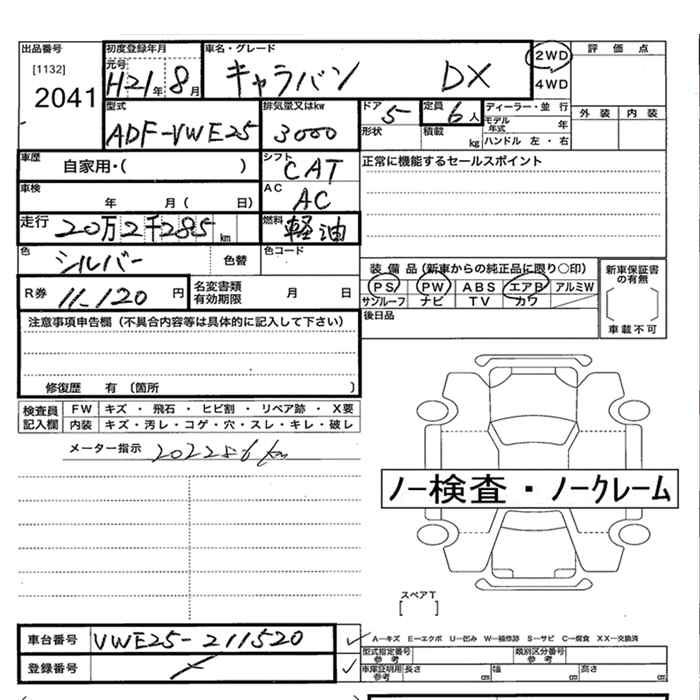 出品番号 初度登録年月 車名・グレード 2WD 評価点
[1132] 元号 H21年 8月 キャラバン DX 4WD
2041 型式 排気量又はkw ドア 5 定員 6人 ディーラー・並行 外装 内装
ADF-VWE25 3000 形状 積載 kg モデル年式 年
ハンドル 左・右
車歴 自家用・( ) シフト CAT 正常に機能するセールスポイント
車検 年 月( 日) AC AC
走行 20万2千285km 燃料 軽油
色 シルバー 色替 色コード
装備品(新車からの純正品に限り○印) 新車保証書の有無
R券 11.120円 名変書類有効期限 月 日 PS PW ABS エアB アルミW
サンルーフ ナビ TV カワ
車載不可
注意事項申告欄(不具合内容等は具体的に記入して下さい) 後日品
修復歴 有 (箇所 )
検査員記入欄 FW キズ・飛石・ヒビ割・リペア跡・X要
内装 キズ・汚レ・コゲ・穴・スレ・キレ・破レ
メーター指示 202286km
ノー検査・ノークレーム
スペアT
[ ]
車台番号 VWE25-211520 A―キズ E―エクボ U―凹み W―補修跡 S―サビ C―腐食 XX―交換済
型式指定番号参考 類別区分番号参考
登録番号 車庫証明用参考 長さ cm 幅 cm 高さ cm